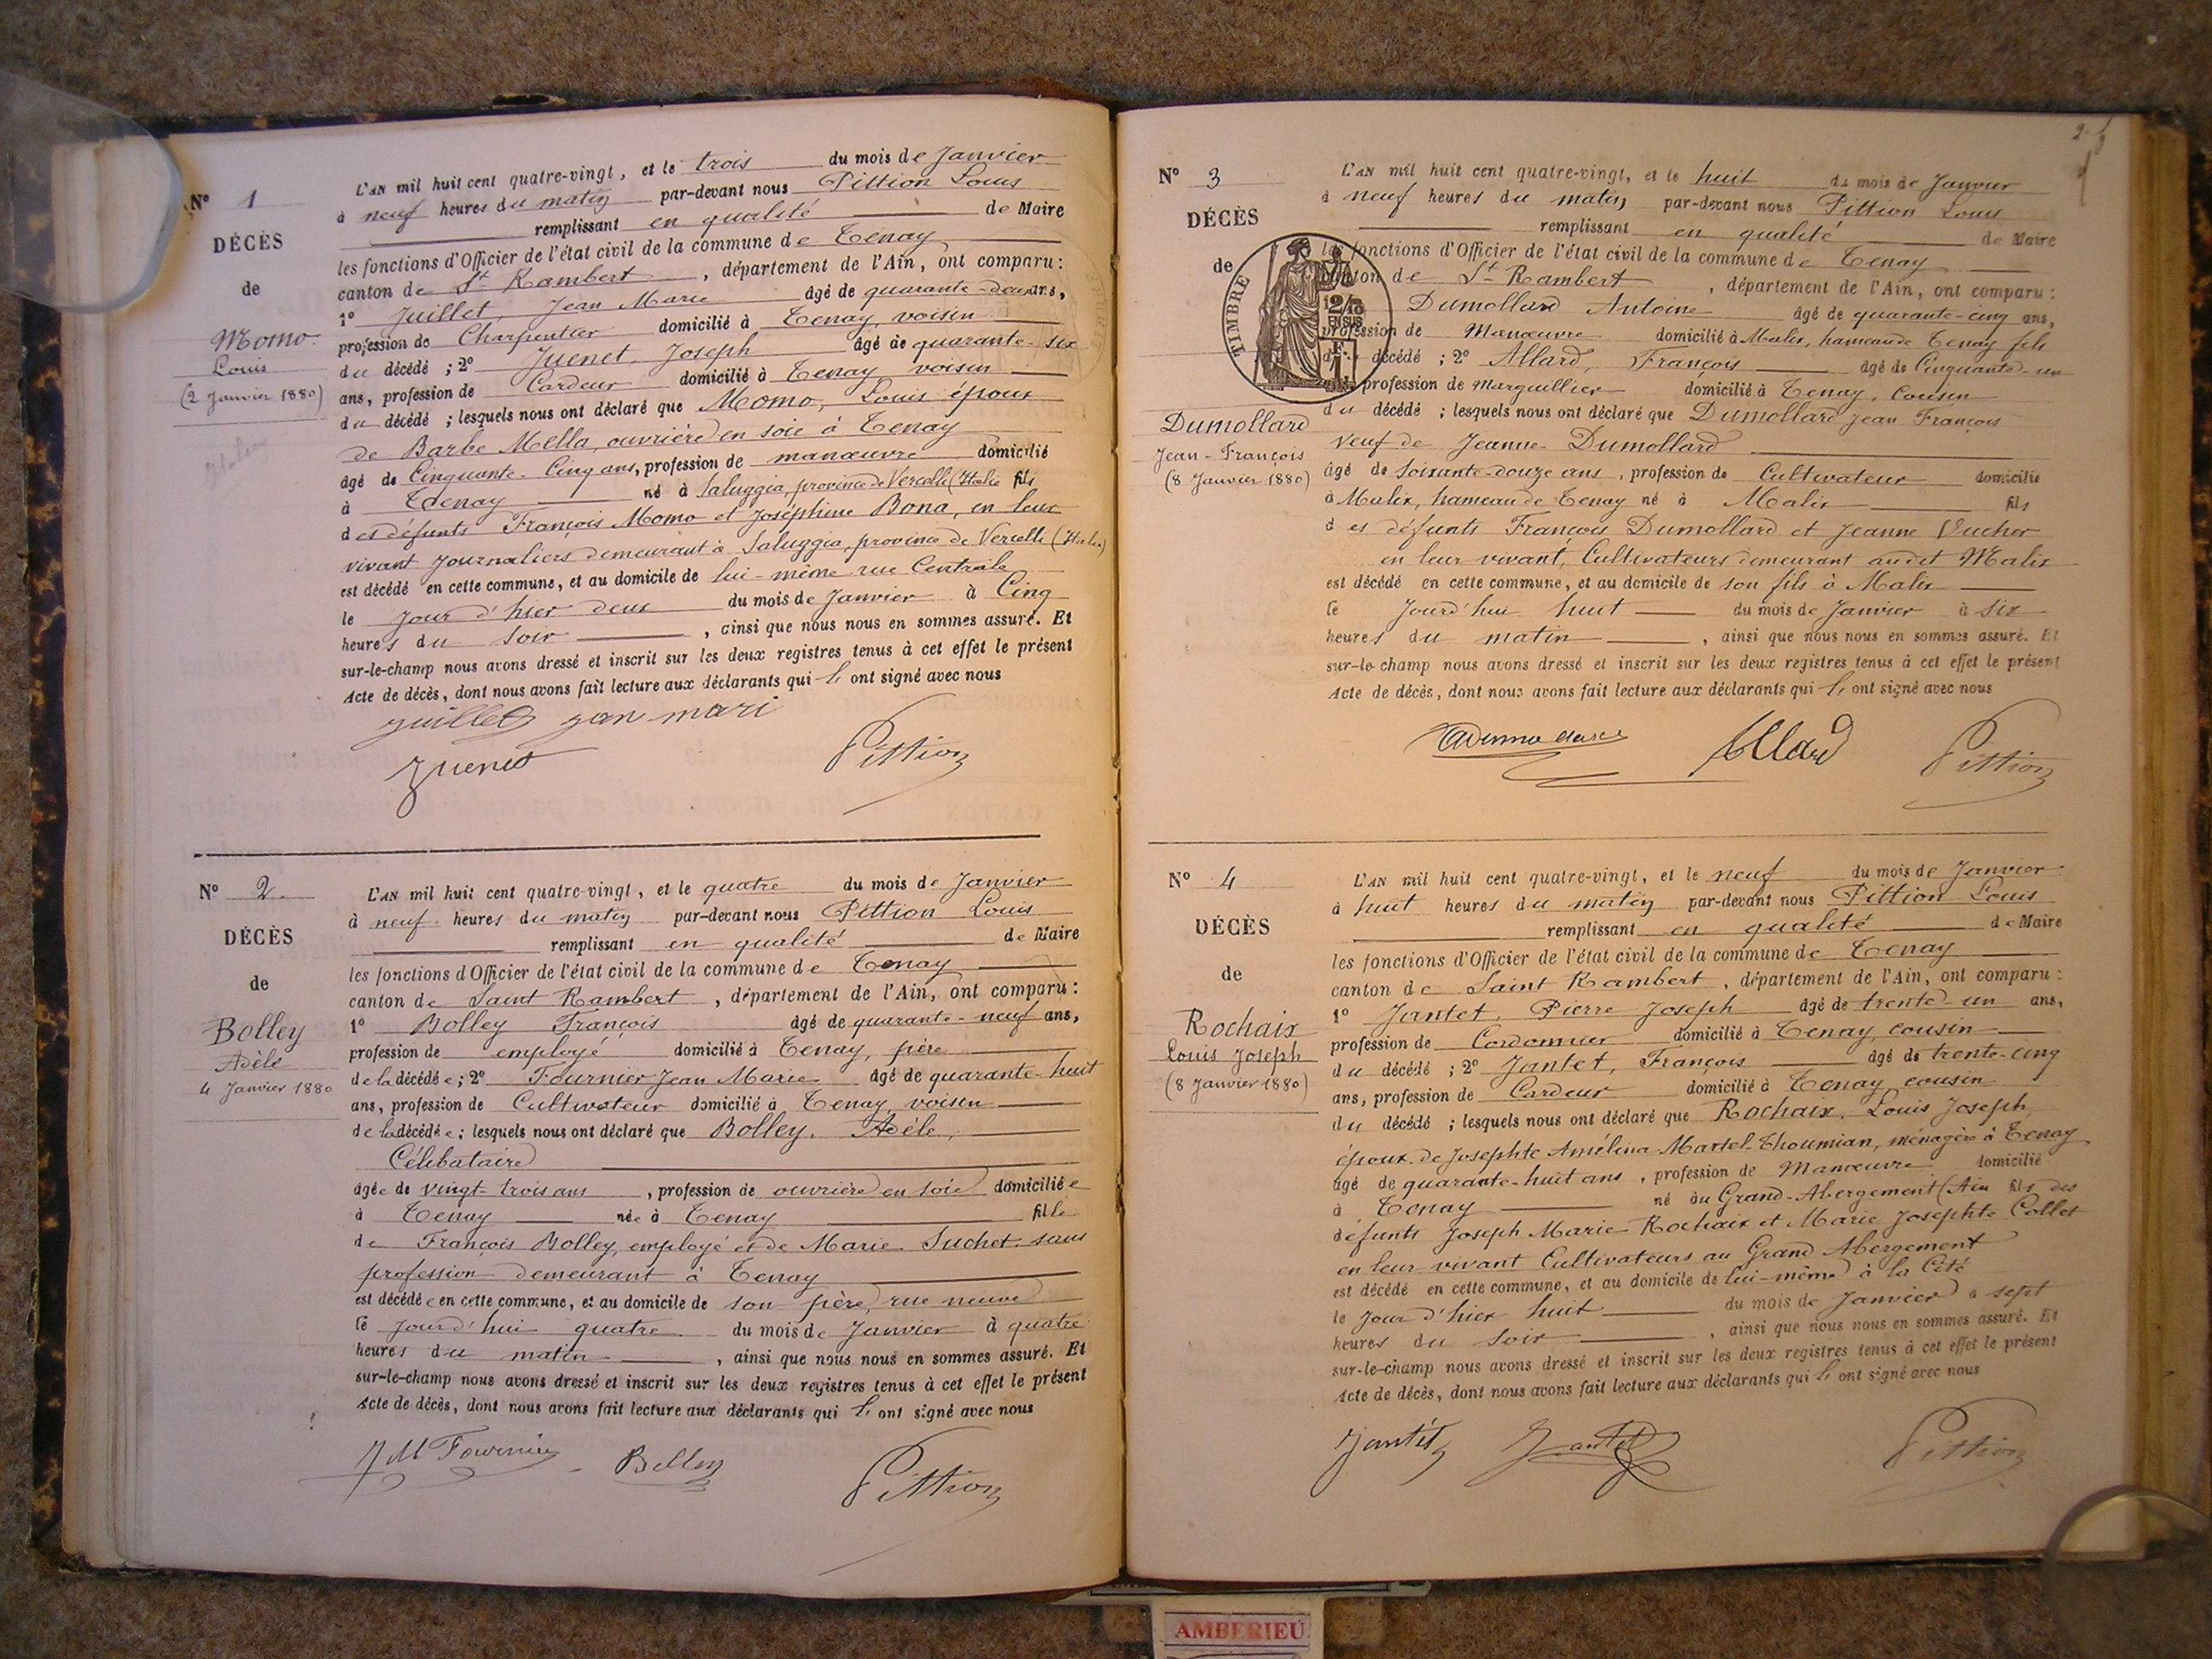 N° 1
DÉCÈS
de
Momo
Louis
(2 Janvier 1880)
L'AN mil huit cent quatre-vingt, et le trois du mois de Janvier
à neuf heures du matin par-devant nous Pittion Louis
remplissant en qualité de Maire
les fonctions d'Officier de l'état civil de la commune de Tenay
canton de St Rambert, département de l'Ain, ont comparu :
1° Juillet, Jean Marie âgé de quarante-deux ans,
profession de Charpentier domicilié à Tenay, voisin
du décédé ; 2° Juenet, Joseph âgé de quarante-six
ans, profession de Cardeur domicilié à Tenay voisin
du décédé ; lesquels nous ont déclaré que Momo, Louis époux
de Barbe Mella, ouvrière en soie à Tenay
âgé de Cinquante-Cinq ans, profession de manœuvre domicilié
à Tenay né à Saluggia, province de Verceille (Italie fils
des défunts François Momo et Joséphine Bona, en leur
vivant Journaliers demeurant à Saluggia, province de Verceille (Italie)
est décédé en cette commune, et au domicile de lui-même rue Centrale
le jour d'hier deux du mois de Janvier à Cinq
heures du soir, ainsi que nous nous en sommes assuré. Et
sur-le-champ nous avons dressé et inscrit sur les deux registres tenus à cet effet le présent
Acte de décès, dont nous avons fait lecture aux déclarants qui l' ont signé avec nous
juillet jan mari
Juenet Pittion
N° 2
DÉCÈS
de
Bolley
Adèle
4 Janvier 1880
L'AN mil huit cent quatre-vingt, et le quatre du mois de Janvier
à neuf heures du matin par-devant nous Pittion Louis
remplissant en qualité de Maire
les fonctions d'Officier de l'état civil de la commune de Tenay
canton de Saint Rambert, département de l'Ain, ont comparu :
1° Bolley François âgé de quarante-neuf ans,
profession de employé domicilié à Tenay, père
de la décédée ; 2° Fournier Jean Marie âgé de quarante-huit
ans, profession de Cultivateur domicilié à Tenay voisin
de la décédée ; lesquels nous ont déclaré que Bolley, Adèle,
Célibataire
âgée de vingt-trois ans, profession de ouvrière en soie domiciliée
à Tenay née à Tenay fille
de François Bolley, employé et de Marie Suchet sans
profession demeurant à Tenay
est décédée en cette commune, et au domicile de son père, rue neuve
le jourd'hui quatre du mois de Janvier à quatre
heures du matin, ainsi que nous nous en sommes assuré. Et
sur-le-champ nous avons dressé et inscrit sur les deux registres tenus à cet effet le présent
Acte de décès, dont nous avons fait lecture aux déclarants qui l' ont signé avec nous
J M Fournier Bolley Pittion
N° 3
DÉCÈS
de
TIMBRE
2/10
EN SUS
Dumollard
Jean-François
(8 Janvier 1880)
L'AN mil huit cent quatre-vingt, et le huit du mois de Janvier
à neuf heures du matin par-devant nous Pittion Louis
remplissant en qualité de Maire
les fonctions d'Officier de l'état civil de la commune de Tenay
canton de St-Rambert, département de l'Ain, ont comparu :
Dumollard Antoine âgé de quarante-cinq ans,
profession de Manœuvre domicilié à Malix, hameau de Tenay fils
du décédé ; 2° Allard, François âgé de Cinquante-un
ans, profession de Marguillier domicilié à Tenay, Cousin
du décédé ; lesquels nous ont déclaré que Dumollard Jean François
veuf de Jeanne Dumollard
âgé de soixante-douze ans, profession de Cultivateur domicilié
à Malix, hameau de Tenay né à Malix fils
des défunts François Dumollard et Jeanne Vucher
en leur vivant, Cultivateurs demeurant audit Malix
est décédé en cette commune, et au domicile de son fils à Malix
le Jourd'hui huit du mois de Janvier à six
heures du matin, ainsi que nous nous en sommes assuré. Et
sur-le-champ nous avons dressé et inscrit sur les deux registres tenus à cet effet le présent
Acte de décès, dont nous avons fait lecture aux déclarants qui l' ont signé avec nous
Allard Pittion
N° 4
DÉCÈS
de
Rochaix
Louis Joseph
(8 Janvier 1880)
L'AN mil huit cent quatre-vingt, et le neuf du mois de Janvier
à huit heures du matin par-devant nous Pittion Louis
remplissant en qualité de Maire
les fonctions d'Officier de l'état civil de la commune de Tenay
canton de Saint Rambert, département de l'Ain, ont comparu :
1° Jantet, Pierre Joseph âgé de trente-un ans,
profession de Cordonnier domicilié à Tenay, cousin
du décédé ; 2° Jantet, François âgé de trente-cinq
ans, profession de Cardeur domicilié à Tenay cousin
du décédé ; lesquels nous ont déclaré que Rochaix, Louis Joseph,
époux de Josephte Amélina Martel-Thoumian, ménagère à Tenay
âgé de quarante-huit ans, profession de Manœuvre domicilié
à Tenay né au Grand-Abergement (Ain fils des
défunts Joseph Marie Rochaix et Marie Josephte Collet
en leur vivant Cultivateurs au Grand Abergement
est décédé en cette commune, et au domicile de lui-même à la Cité
le jour d'hier huit du mois de Janvier à sept
heures du soir, ainsi que nous nous en sommes assuré. Et
sur-le-champ nous avons dressé et inscrit sur les deux registres tenus à cet effet le présent
Acte de décès, dont nous avons fait lecture aux déclarants qui l' ont signé avec nous
Jantet Jantet Pittion
AMBERIEU